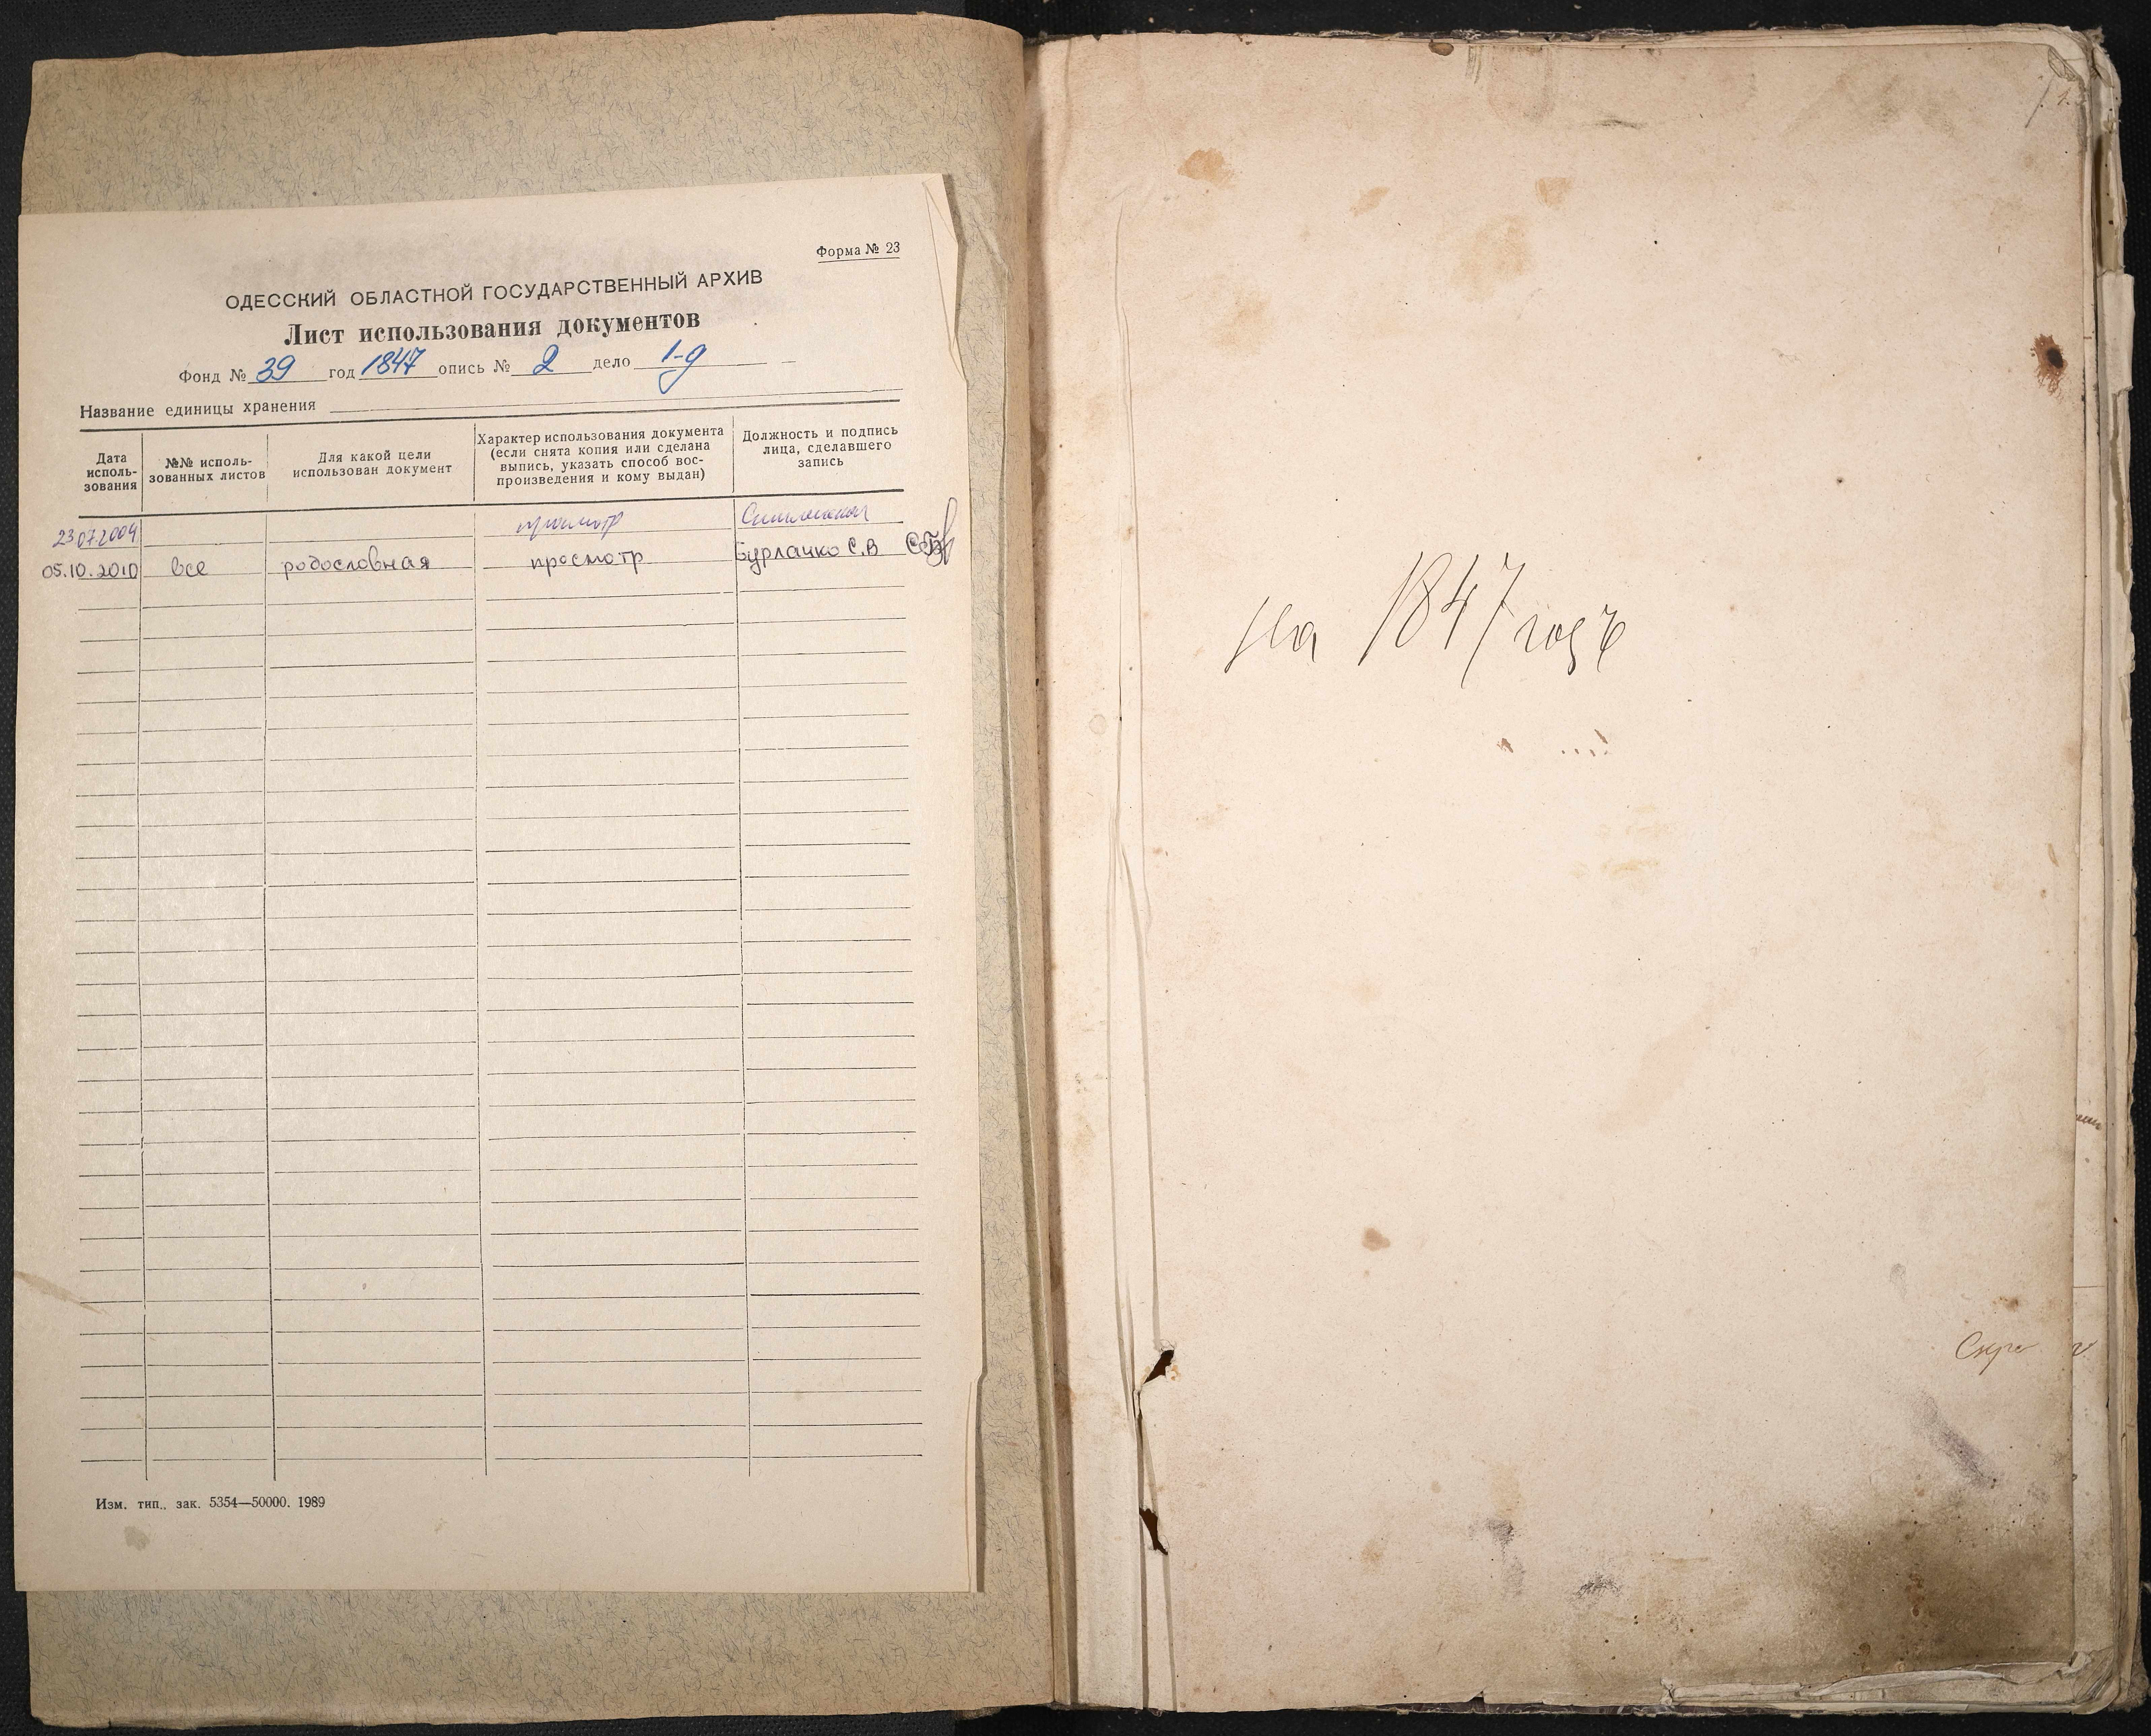 Форма № 23
ОДЕССКИЙ ОБЛАСТНОЙ ГОСУДАРСТВЕННЫЙ АРХИВ
Лист использования документов
Фонд № 39 год 1847 опись № 2 дело 1-д
Название единицы хранения
Дата исполь-зования
№№ исполь-зованных листов
Для какой цели использован документ
Характер использования документа (если снята копия или сделана выпись, указать способ вос-произведения и кому выдан)
Должность и подпись лица, сделавшего запись
23.07.2004 просмотр
05.10.2010 все родословная просмотр Бурлачко С.В
Изм. тип., зак. 5354—50000. 1989
1.
На 1847 годъ